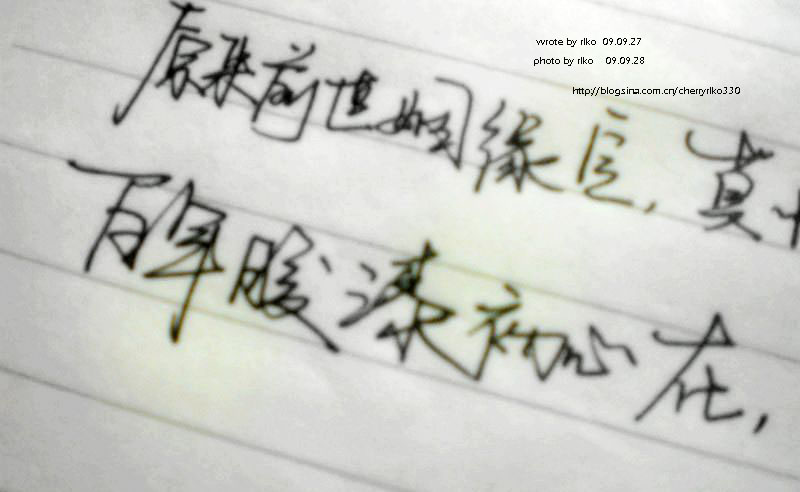 wrote by rlko 09.09.27
photo by rlko 09.09.28
http://blog.sina.com.cn/cherryrlko330
原来前世姻缘定,
百年暖初心在,